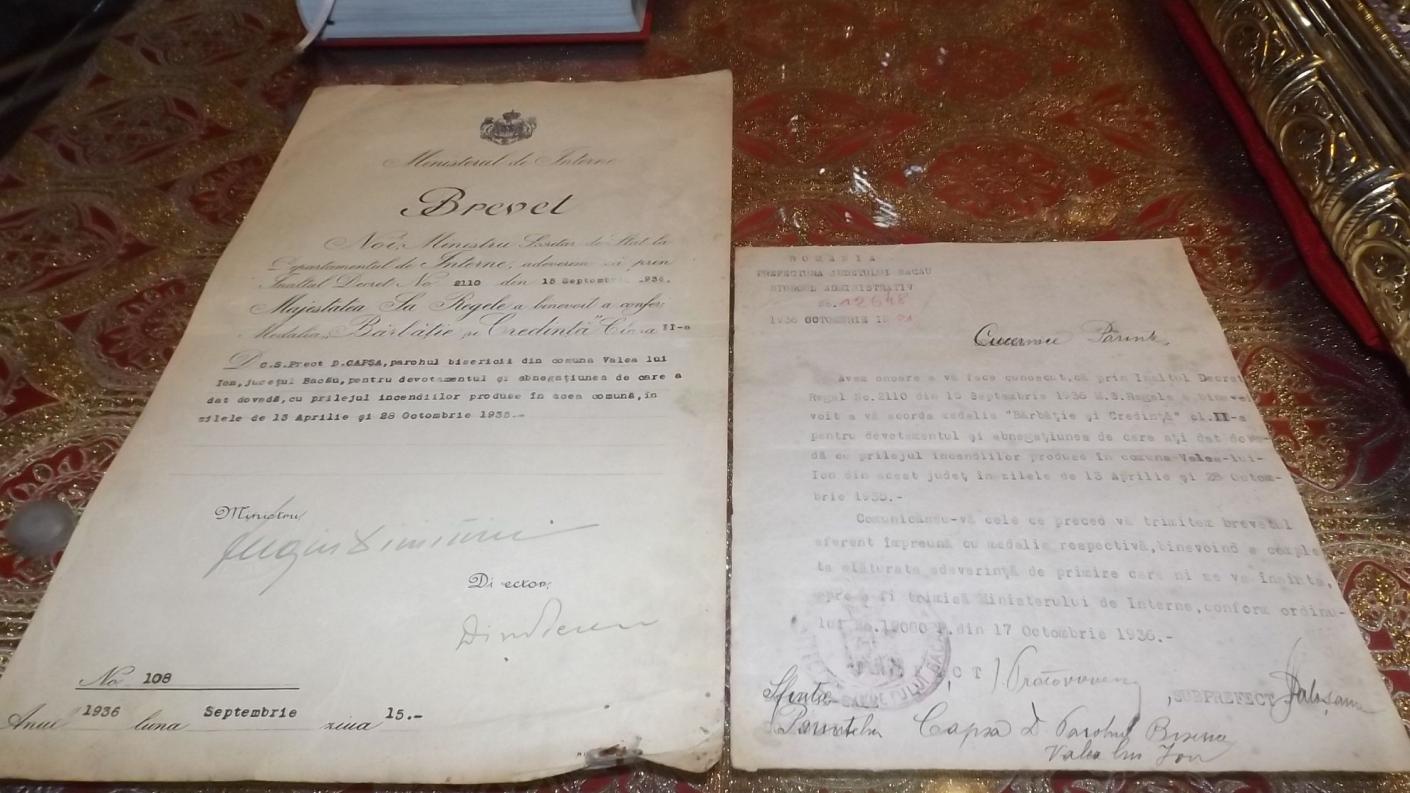 Ministerul de Interne
Brevet
Noi, Ministru Secretar de Stat la
Departamentul de Interne, adeverim că prin
Înaltul Decret No. 2110 din 15 Septembrie 1936.
Majestatea Sa Regele a binevoit a conferi
Medalia „Bărbăție și Credință" Clasa II-a
D C.S.Preot D.CAPSA, parohul bisericii din comuna Valea lui
Ion, județul Bacău, pentru devotamentul și abnegațiunea de care a
dat dovadă, cu prilejul incendiilor produse în acea comună, în
zilele de 13 Aprilie și 28 Octombrie 1935.-
Ministru
Director,
No. 108
Anul 1936 luna Septembrie ziua 15.-
ROMANIA
PREFECTURA JUDETULUI BACAU
BIUROUL ADMINISTRATIV
No. 12648
1936 OCTOMBRIE
Cucernice Părinte,
Avem onoare a vă face cunoscut, că prin Inaltul Decret
Regal No.2110 din 15 Septembrie 1936 M.S.Regele a bine-
voit a vă acorda medalia "Bărbăție și Credință" cl.II-a
pentru devotamentul și abnegațiunea de care ați dat dova-
dă cu prilejul incendiilor produse în comuna Valea-lui-
Ion din acest județ în zilele de 13 Aprilie și 28 Octom-
brie 1935.-
Comunicându-vă cele ce preced vă trimitem brevetul
aferent împreună cu medalia respectivă, binevoind a comple
ta alăturata adeverință de primire care ni se va înainta,
spre a fi trimisă Ministerului de Interne, conform ordinu-
lui No. din 17 Octombrie 1936.-
SUBPREFECT
Sfinția
Părintelui Capsa D Parohul Biserici
Valea lui Ion